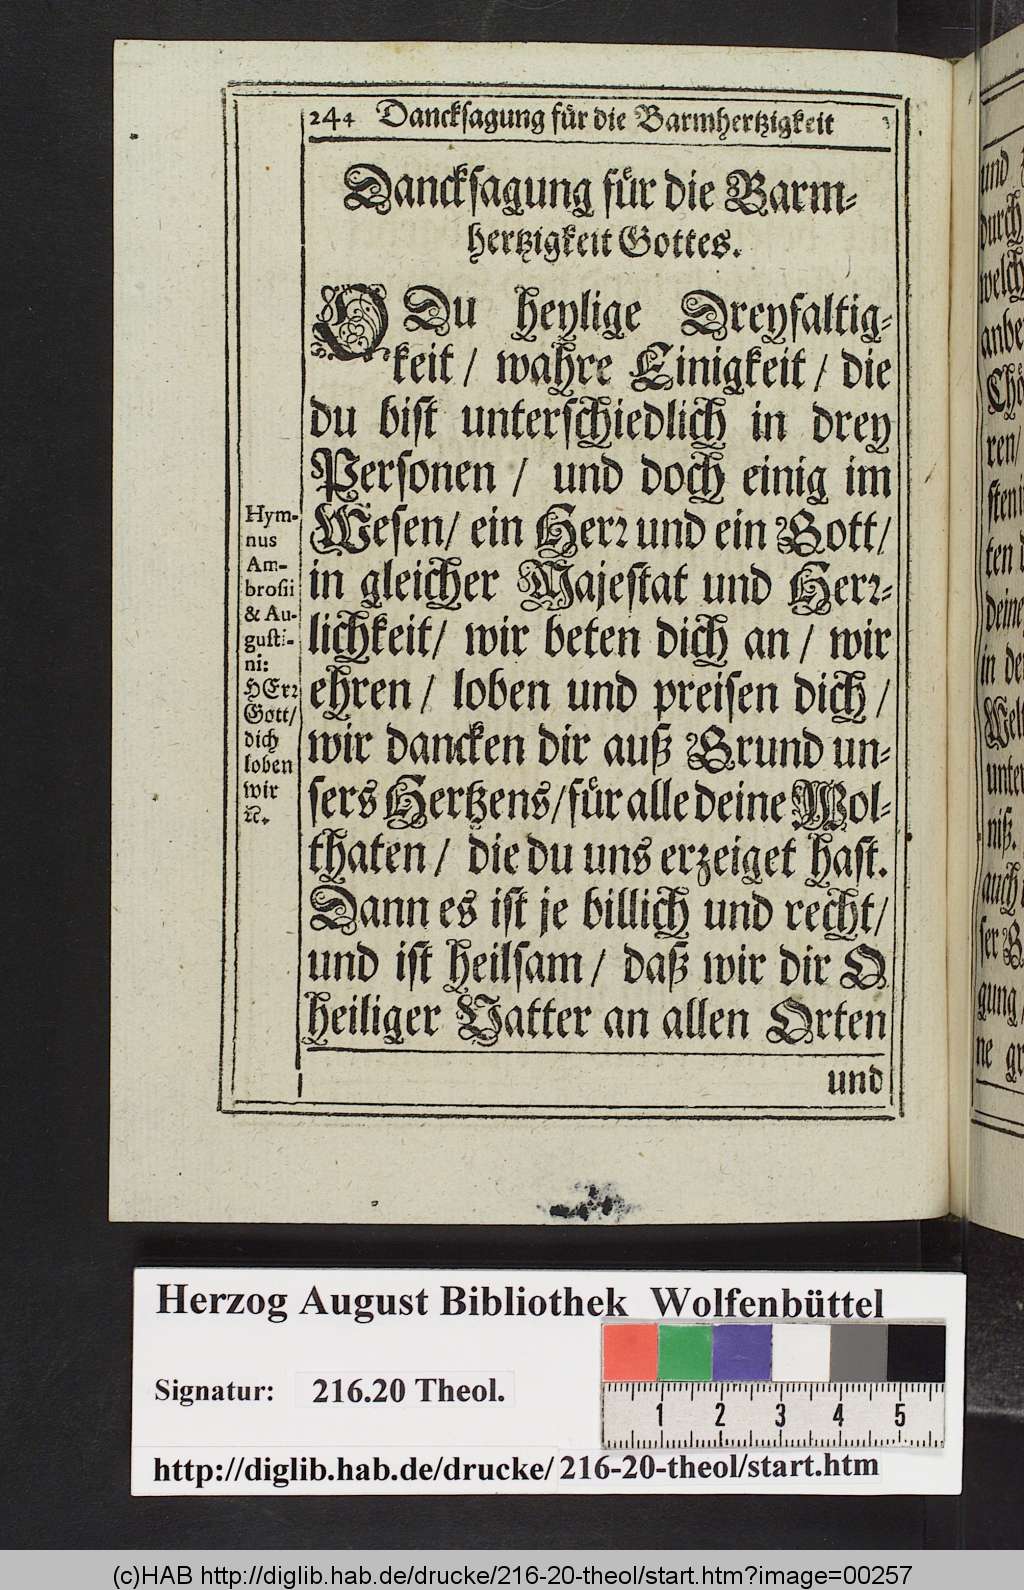 244 Danckſagung fuͤr die Barmhertzigkeit
Danckſagung fuͤr die Barm⸗
hertzigkeit Gottes.
O Du heylige Dreyfaltig⸗
keit / wahre Einigkeit / die
du biſt unterſchiedlich in drey
Perſonen / und doch einig im
Weſen / ein Herꝛ und ein Gott /
in gleicher Majeſtat und Herꝛ⸗
lichkeit / wir beten dich an / wir
ehren / loben und preiſen dich /
wir dancken dir auß Grund un⸗
ſers Hertzens / fuͤr alle deine Wol⸗
thaten / die du uns erzeiget haſt.
Dann es iſt je billich und recht /
und iſt heilſam / daß wir dir O
heiliger Vatter an allen Orten
und
Hym-
nus
Am-
broſii
& Au-
guſti-
ni:
HErꝛ
Gott /
dich
loben
wir
ꝛc.
und
durch
welch
anbe
Chö
ren /
ſten i
ten
deine
in de
Wel
unter
niß.
auch
ſer
gung /
ne gr
Herzog August Bibliothek Wolfenbüttel
Signatur: 216.20 Theol.
1 2 3 4 5
http://diglib.hab.de/drucke/216-20-theol/start.htm
(c)HAB http://diglib.hab.de/drucke/216-20-theol/start.htm?image=00257